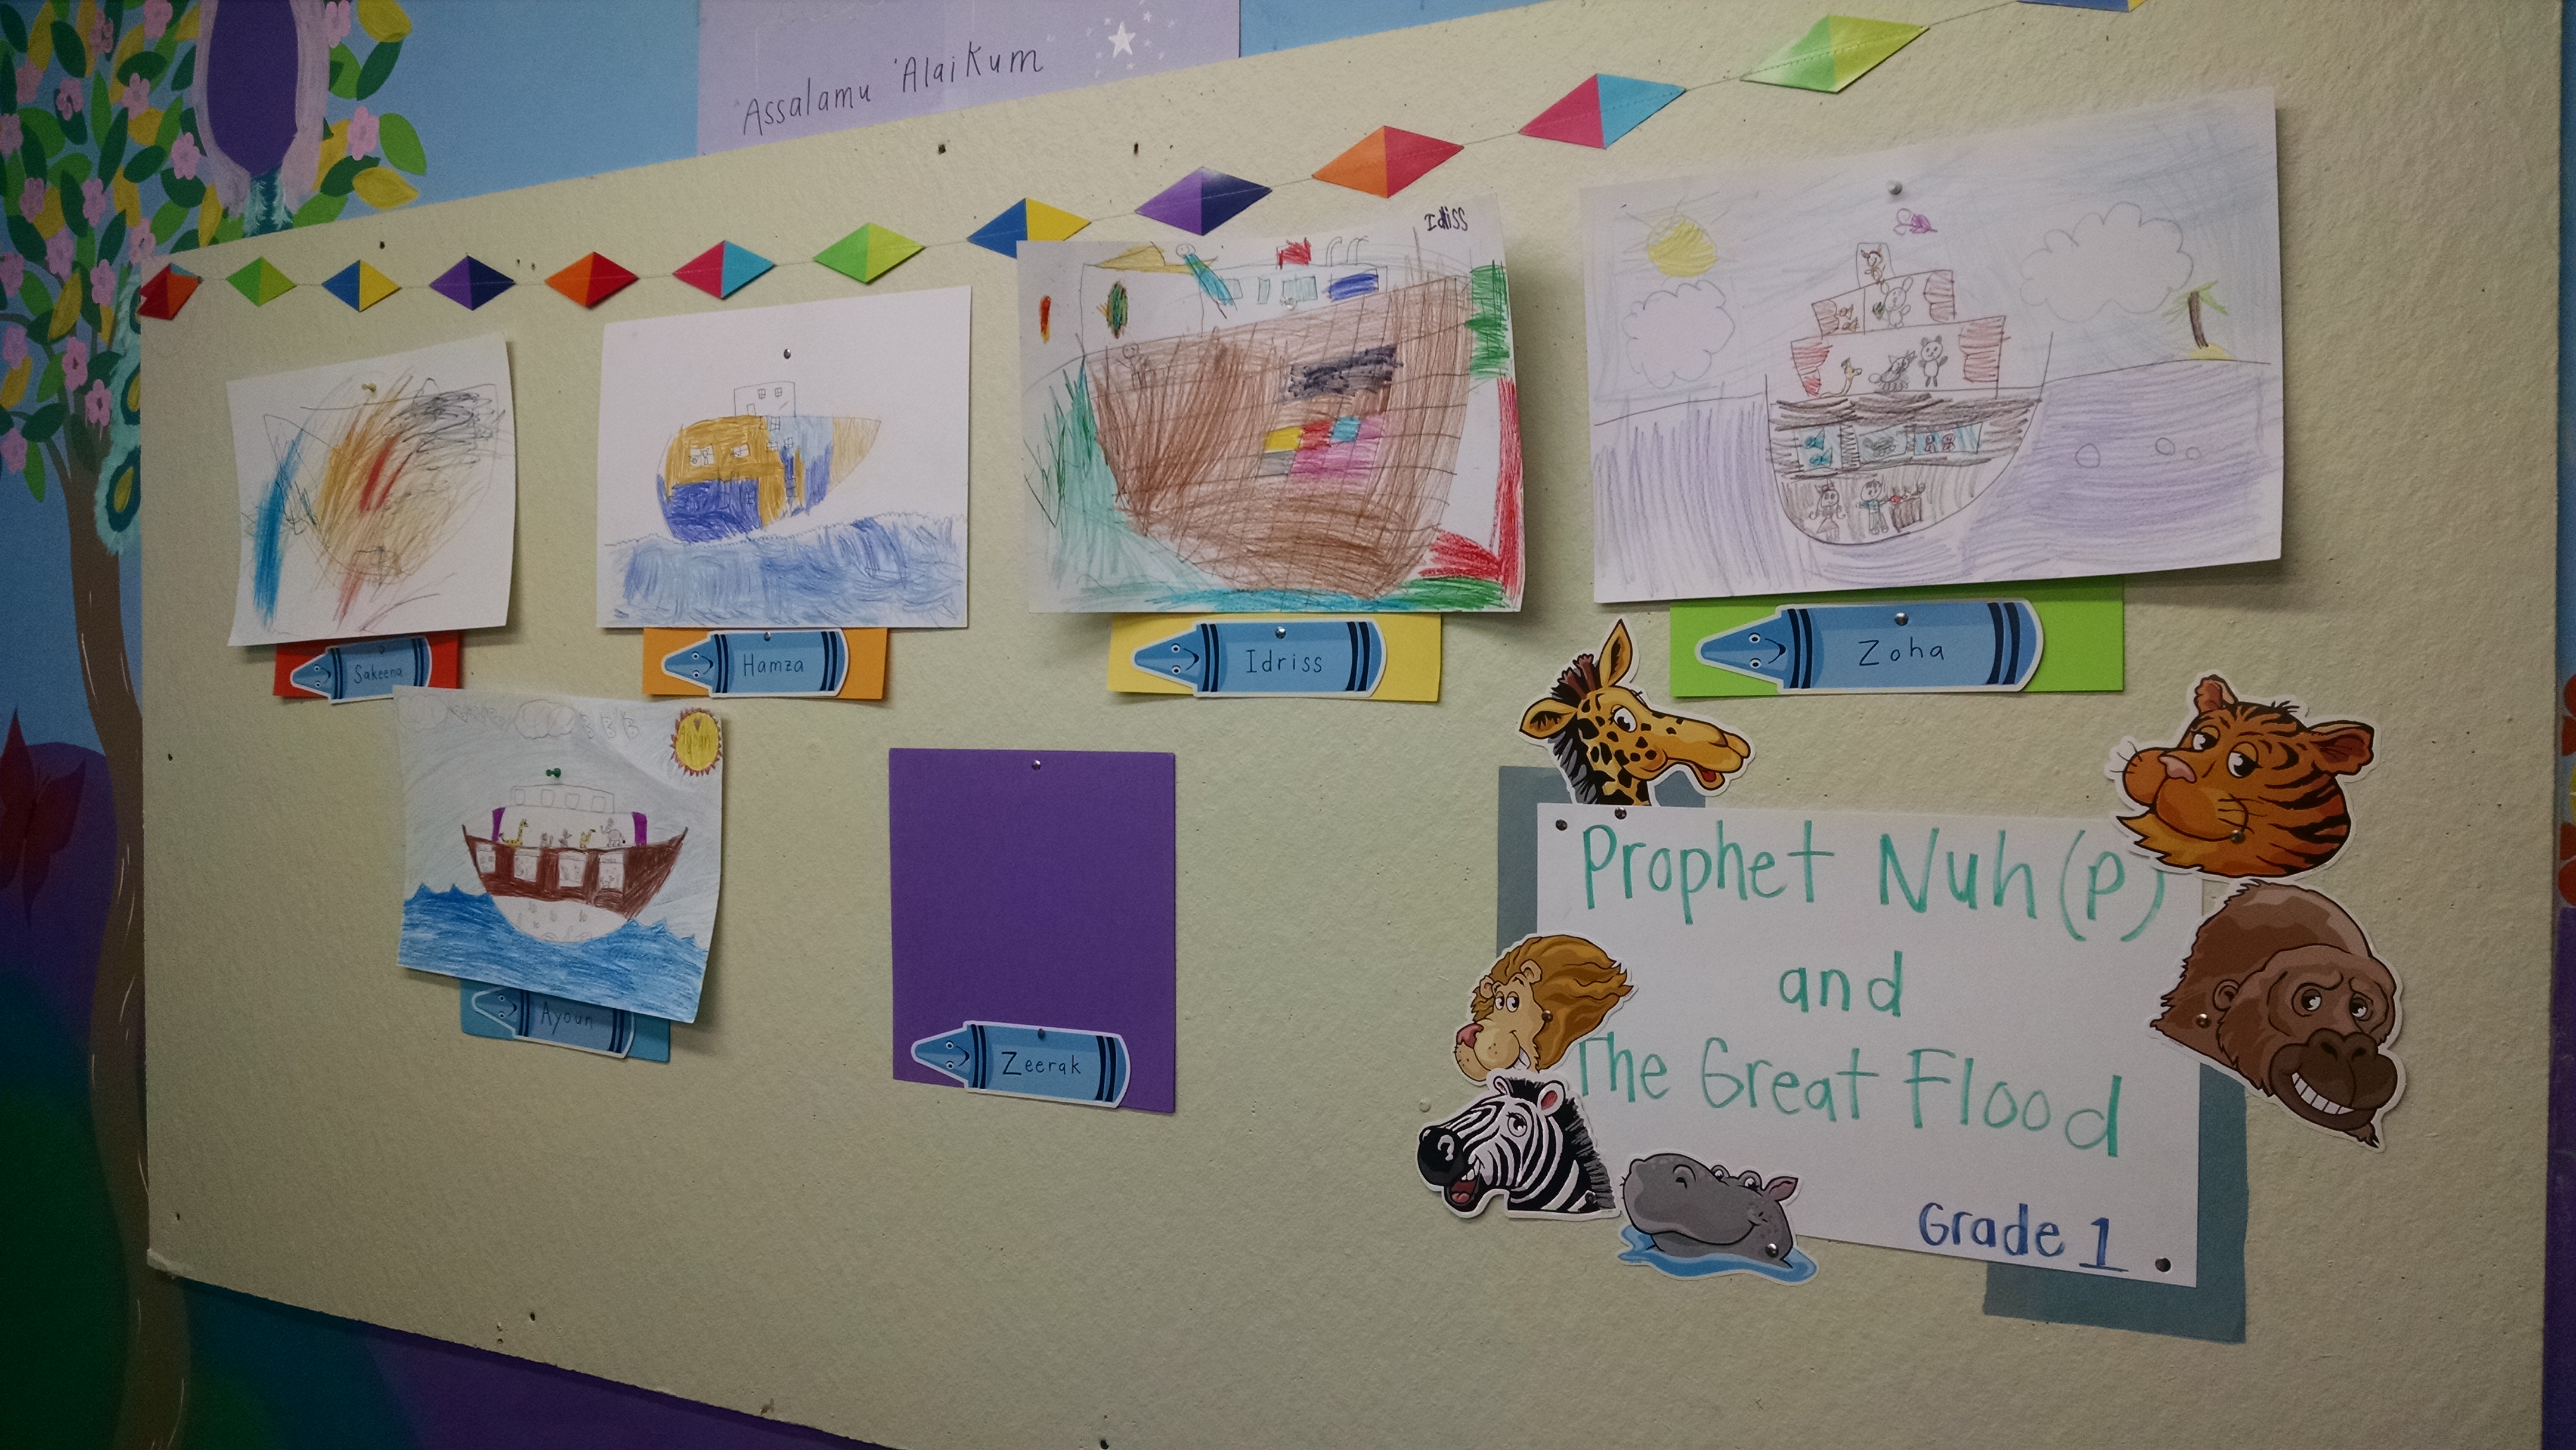 Assalamu 'Alaikum
Idriss
Sakeena
Hamza
Idriss
Zoha
Ayoun
Zeerak
Prophet Nuh (p)
and
The Great Flood
Grade 1